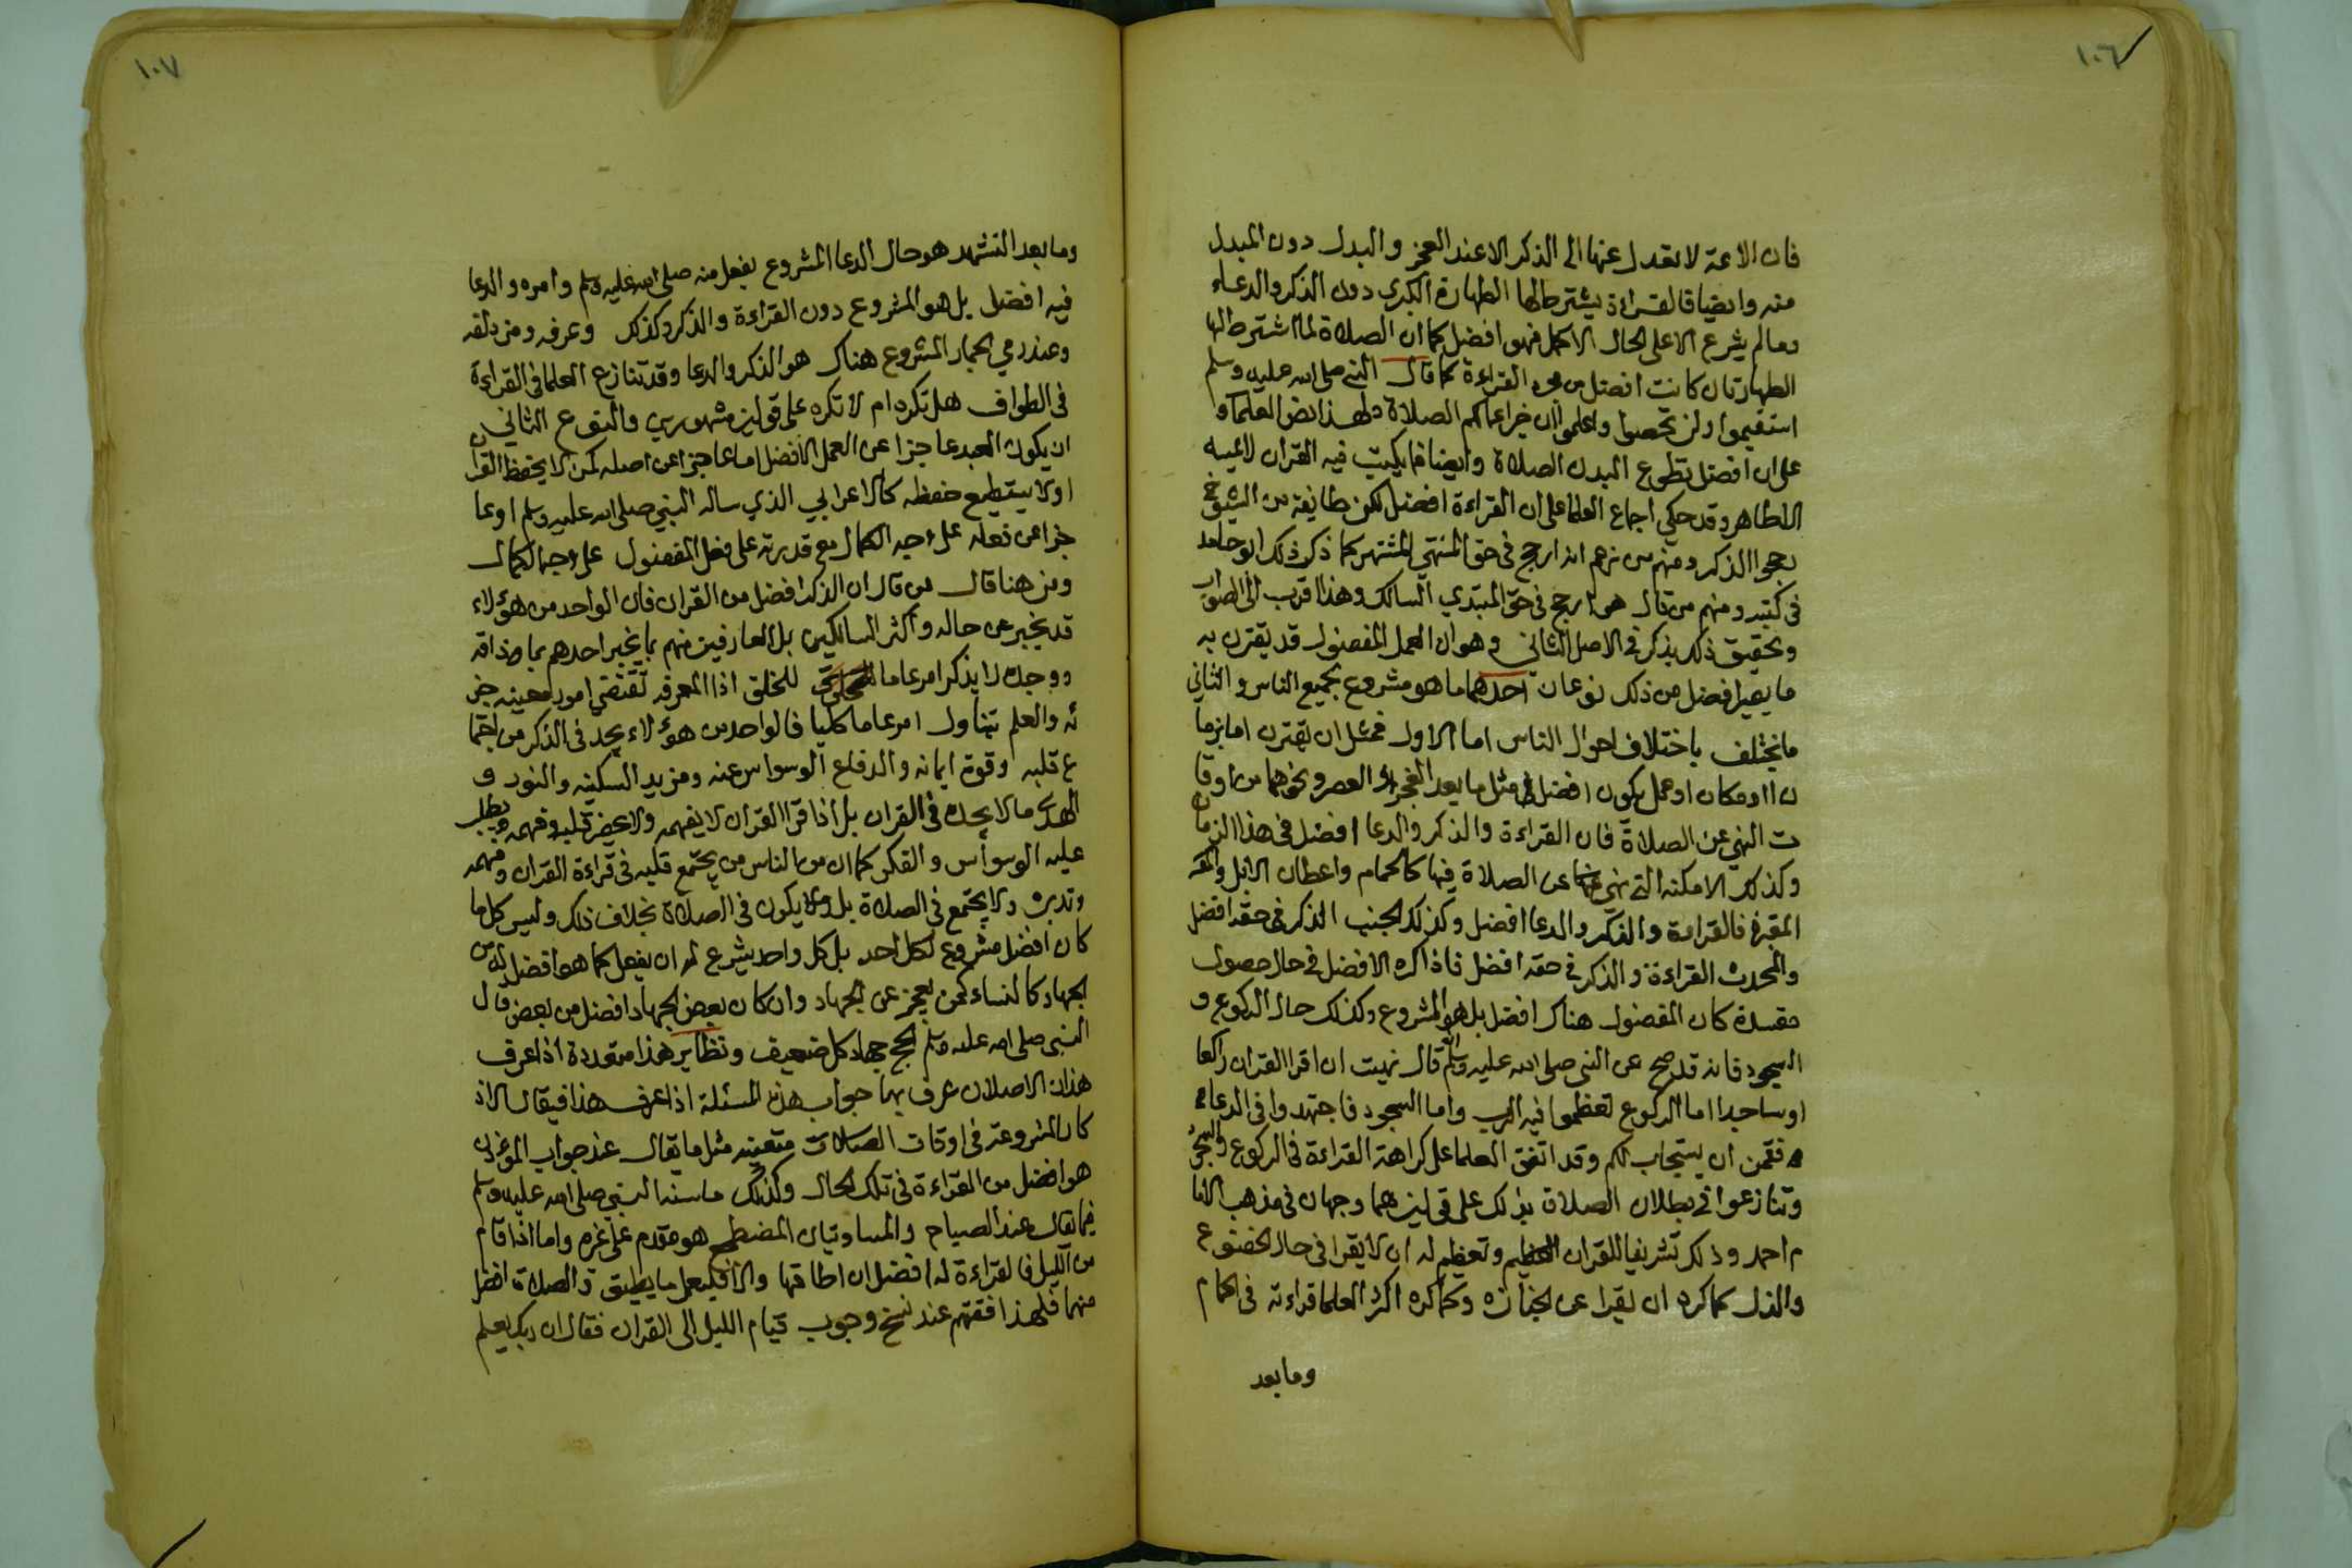 ١٠٦
فان الائمة لا تعدل عنها الى الذكر الا عند العجز والبدل دون المبدل
منه وايضا فالقراءة يشترط لها الطهارة الكبرى دون الذكر والدعاء
ومالم يشرع الا على الحال الاكمل فهو افضل كما ان الصلاة لما اشترط لها
الطهارتان كانت افضل من مجرد القراءة كما قال النبي صلى الله عليه وسلم
استقيموا ولن تحصوا واعلموا ان خير اعمالكم الصلاة ولهذا نص العلماء
على ان افضل تطوع البدن الصلاة وايضا فما يكتب فيه القران لا يمسه
الا طاهر وقد حكي اجماع العلما على ان القراءة افضل لكن طايفة من الشيوخ
رجحوا الذكر ومنهم من زعم انه ارجح في حق المنتهي المشتهر كما ذكر ذلك ابو حامد
في كتبه ومنهم من قال هو ارجح في حق المبتدي السالك وهذا اقرب الى الصواب
وتحقيق ذلك يذكر في الاصل الثاني وهو ان العمل المفضول قد يقترن به
ما يصير افضل من ذلك نوعان احدهما ما هو مشروع بجميع الناس والثاني
ما يختلف باختلاف احوال الناس اما الاول فمثل ان يقترن اما بزما
ن او مكان او عمل يكون افضل مثل ما بعد الفجر و العصر ونحوهما من اوقا
ت النهي عن الصلاة فان القراءة والذكر والدعا افضل في هذا الزمان
وكذلك الامكنه التي نهي عن الصلاة فيها كالحمام واعطان الابل و
المقبرة فالقراءة والذكر والدعا افضل وكذلك الجنب الذكر في حقه افضل
والمحدث القراءة والذكر في حقه افضل فاذا كره الافضل في حال حصول
مفسدة كان المفضول هناك افضل بل هو المشروع وكذلك حال الركوع و
السجود فانه قد صح عن النبي صلى الله عليه وسلم انه قال نهيت ان اقرا القران راكعا
او ساجدا اما الركوع فعظموا فيه الرب واما السجود فاجتهدوا في الدعا
فقمن ان يستجاب لكم وقد اتفق العلما على كراهة القراءة في الركوع والسجود
وتنازعوا في بطلان الصلاة بذلك على قولين هما وجهان في مذهب الاما
م احمد وذلك تشريفا للقران العظيم وتعظيم له ان لا يقرا في حال الخضوع
والذل كما كره ان يقرا عن الجنازه وكما كره اكثر العلما قراءته في الحمام
وما بعد
١٠٧
وما بعد التشهد هو حال الدعا المشروع بفعل منه صلى الله عليه وسلم وامره والدعا
فيه افضل بل هو المشروع دون القراءة والذكر وكذلك وعرفه ومزدلفه
وعند رمي الجمار المشروع هناك هو الذكر والدعا وقد تنازع العلما في القراءة
في الطواف هل تكره ام لا تكره على قولين مشهورين والنوع الثاني
ان يكون العبد عاجزا عن العمل الافضل اما عاجزا عن اصله كمن لا يحفظ القران
او لا يستطيع حفظه كالاعرابي الذي ساله النبي صلى الله عليه وسلم او عا
جزا عن فعله على وجه الكمال مع قدرته على فعل المفضول على وجه الكمال
ومن هنا قال من قال ان الذكر افضل من القران فان الواحد من هؤلاء
قد يخبر عن حاله واكثر السالكين بل العارفين منهم بما يخبر احدهم بما ذاقه
ووجده لا يذكر امر عاما للخلق اذا المعرفه تقتضي امور معينه جز
ئه والعلم تناول امر عاما كليا فالواحد من هؤلاء يجد في الذكر من اجتما
ع قلبه وقوة ايمانه واندفاع الوسواس عنه ومزيد السكينه والنور و
الهدى ما لا يجده في القران بل اذا قرا القران لا يفهمه ولا يحضر قلبه وفهمه و
عليه الوسواس والفكر كما ان من الناس من يجتمع قلبه في قراءة القران وفهمه
وتدبره ولا يجتمع في الصلاة بل ولا يكون في الصلاة بخلاف ذلك وليس كل ما
كان افضل مشروع لكل احد بل كل واحد يشرع له ان يفعل كما هو افضل له من
الجهاد كالنساء كمن يعجز عن الجهاد وان كان بعض الجهاد افضل من بعض قال
النبي صلى الله عليه وسلم الحج جهاد كل ضعيف ونظاير هذا متعددة اذا عرف
هذان الاصلان عرف بهما جواب هذه المسئلة اذا عرف هذا فيقال الاذ
كار المشروعة في اوقات الصلات متعينه مثل ما يقال عند جواب المؤذن
هو افضل من القراءة في تلك الحال وكذلك ما سنه النبي صلى الله عليه وسلم
فيما يقال عند الصباح والمسا واتيان المضطجع هو مقدم على غره واما اذا قام
من الليل فالقراءة له افضل ان اطاقها والا فليعمل ما يطيق و الصلاة افضل
منهما فلهذا عند نسخ وجوب قيام الليل الى القران فقال ان ربك يعلم